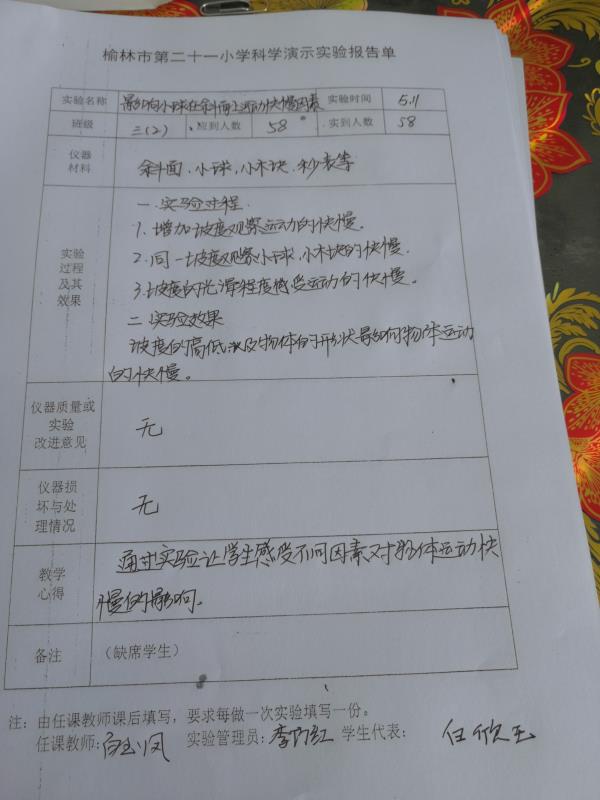 榆林市第二十一小学科学演示实验报告单
实验名称 影响小球在斜面上运动快慢因素 实验时间 5.11
班级 三(2) 应到人数 58 实到人数 58
仪器
材料
斜面、小球、小木块、秒表等
实验
过程
及其
效果
一.实验过程.
1.增加坡度观察运动的快慢.
2.同一坡度观察小球、小木块的快慢
3.坡度的光滑程度感受运动的快慢.
二 实验效果
坡度的高低以及物体的形状影响物体运动
的快慢.
仪器质量或
实验
改进意见
无
仪器损
坏与处
理情况
无
教学
心得
通过实验让学生感受不同因素对物体运动快
慢的影响.
备注
(缺席学生)
注:由任课教师课后填写,要求每做一次实验填写一份。
任课教师: 白玉凤 实验管理员: 红 学生代表: 任欣玉